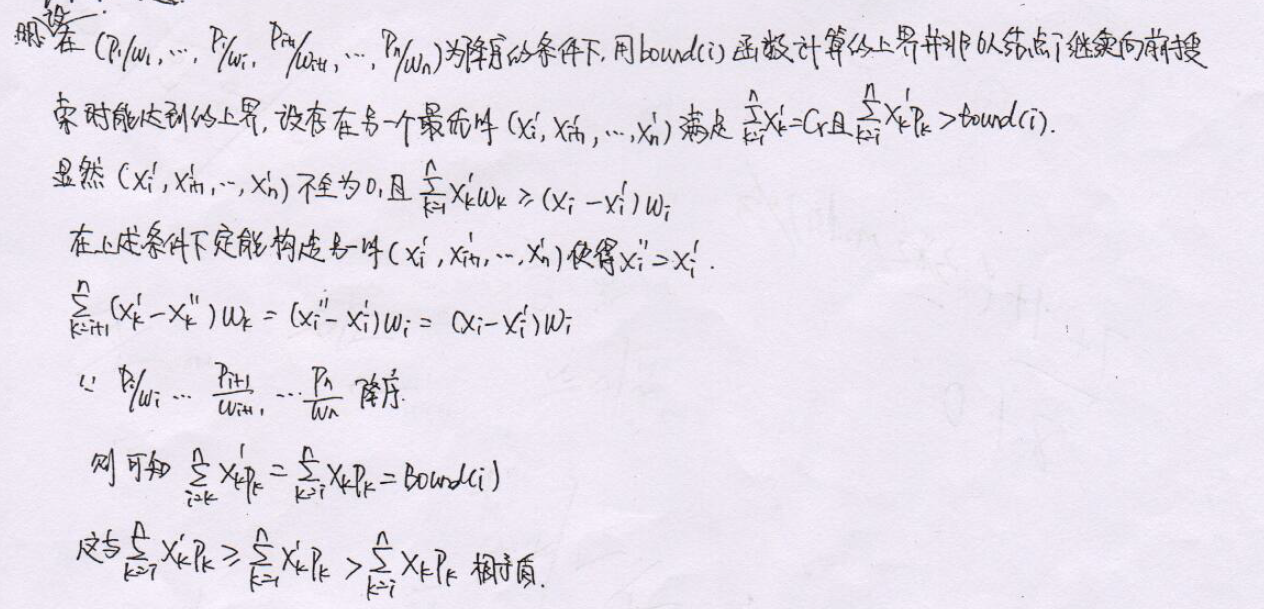 设
在 (P₁/w₁, ⋯, Pᵢ/wᵢ, Pᵢ₊₁/wᵢ₊₁, ⋯, Pₙ/wₙ) 为降序的条件下, 用bound(i) 函数计算的上界并非从结点i继续向前搜
索时能达到的上界, 设存在另一个最优解 (xᵢ', xᵢ₊₁', ⋯, xₙ') 满足 ∑ₖ₌ᵢⁿ xₖ' = Cr 且 ∑ₖ₌ᵢⁿ xₖ'Pₖ > bound(i).
显然 (xᵢ', xᵢ₊₁', ⋯, xₙ') 不全为0, 且 ∑ₖ₌₁ⁿ xₖ'wₖ ≥ (xᵢ - xᵢ')wᵢ
在上述条件下定能构造另一解 (xᵢ', xᵢ₊₁', ⋯, xₙ') 使得 xᵢ'' = xᵢ'.
∑ₖ₌ᵢ₊₁ⁿ (xₖ' - xₖ'')wₖ = (xᵢ'' - xᵢ')wᵢ = (xᵢ - xᵢ')wᵢ
∵ Pᵢ/wᵢ ⋯ Pᵢ₊₁/wᵢ₊₁, ⋯ Pₙ/wₙ 降序.
则可知 ∑ᵢ₌ₖⁿ xₖ'Pₖ = ∑ₖ₌ᵢⁿ xₖPₖ = Bound(i)
这与 ∑ₖ₌ᵢⁿ xₖ'Pₖ ≥ ∑ₖ₌₁ⁿ xₖ'Pₖ > ∑ₖ₌ᵢⁿ xₖPₖ 相矛盾.